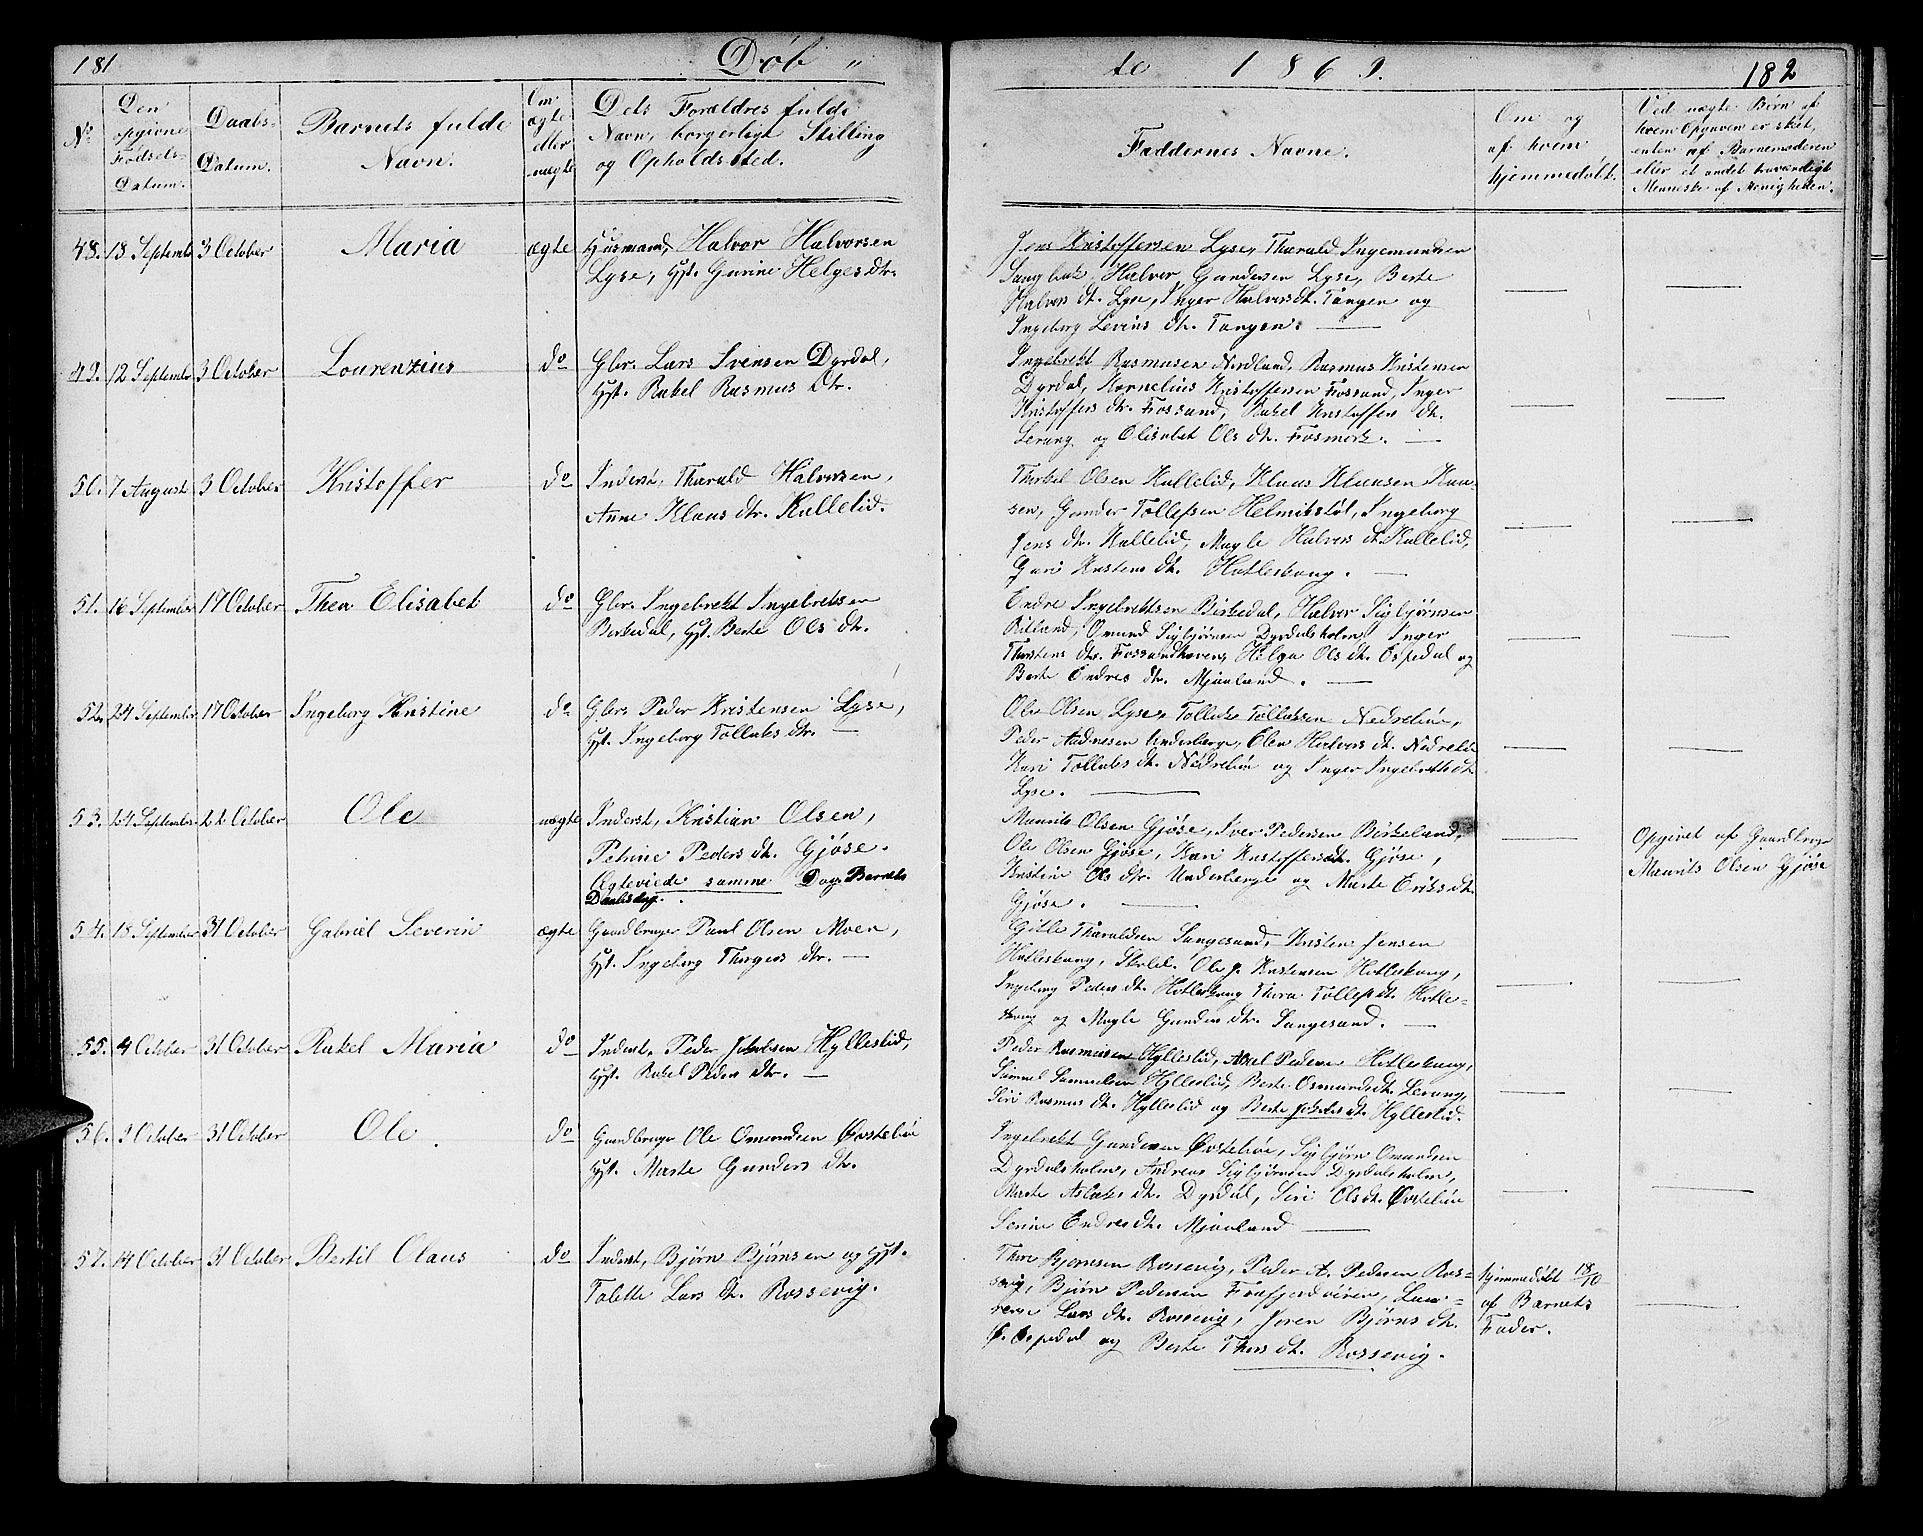 181
Döb "
te 1869.
182
No
Den opgivne Födsels-Datum.
Daabs-Datum.
Barnets fulde Navn.
Om ægte eller uægte
Dets Forældres fulde Navn, borgerligt Stilling og Opholdssted.
Faddernes Navne.
Om og af hvem hjemmedøbt.
Ved uægte Børn af hvem Opgaven er skeet, enten af Barnemoderen eller et andet troværdigt Menneske af Menigheden.
48. 18 Septembr 3 October Maria ægte Husmand, Halvor Halvorsen
Lyse, Hst. Gurine Helgesdtr.
Jens Kristoffersen Lyse, Tharald Ingemundsen
Sangbak, Halvor Gundersen Lyse, Berte
Halvors dt. Lyse, Inger Halvorsdt. Tangen og
Ingeborg Levins dtr. Tangen.
49. 12 Septembr 3 October Lourenzius do Gbr. Lars Svensen Dyrdal,
Hst. Rakel Rasmus Dtr.
Ingebrekt Rasmusen Nordland, Rasmus Kristensen
Dyrdal, Kornelius Kristoffersen Fossand, Inger
Kristoffers dtr. Fossand, Rakel Kristoffers dt.
Lerang og Elisabet Ols dtr. Fosmork.
50. 7 August 3 October Kristoffer do Inderst, Tharald Halvorsen,
Anne Klaus dtr. Kallelid.
Thorkel Olsen Kallelid, Klaus Klausen
Gunder Tollefsen Helmikstøl, Ingeborg
Jens dt. Kallelid, Magle Halvors dt. Kallelid,
Guri Kristens dt. Hatleskaug.
51. 16 September 17 October Thea Elisabet do Gbr. Ingebrekt Ingebretsen
Birkedal, Hst. Berte Ols dtr.
Endre Ingebrektsen Birkedal, Halvor Sigbjørnsen
Ritland, Omund Sigbjørnsen Dyrdalsholm, Inger
Thorstens dtr. Fossandhaven, Helga Ols dt. Espedal og
Berte Endres dtr. Mjaaland.
52. 24 September 17 October Ingeborg Kristine do Gbr. Peder Kristensen Lyse,
Hst. Ingeborg Tollaks dtr.
Ole Olsen Lyse, Tollak Tollaksen Nedrebøe,
Peder Andresen Underberge, Elen Halvors dt. Nedrebøe
Kari Tollaks dt. Nedrebøe og Inger Ingebretsdt.
Lyse.
53. 24 September 22 October Ole uægte Inderst, Kristian Olsen,
Petrine Peders dt. Gjøse.
Ægteviede samme Dag Barnets
Daabsdag.
Maurits Olsen Gjøse, Iver Pedersen Birkeland,
Ole Olsen Gjøse, Kari Kristoffersdt. Gjøse,
Kristine Ols dtr. Underberge og Marte Eriks dt.
Gjøse.
Opgivet af Gaardbruger
Maurits Olsen Gjøse
54. 18 September 31 October Gabriel Severin ægte Gaardbruger Paul Olsen Moen,
Hst. Ingeborg Thorgers dtr.
Gitle Tharaldsen Sangesand, Kristen Jensen
Hatleskaug, Skolel. Ole J. Kristensen Hatleskaug,
Ingeborg Peders dt. Hatleskaug Thora Tollefs dt. Hatle-
skaug og Magle Gunders dtr. Sangesand.
55. 4 October 31 October Rakel Maria do Inderst, Peder Jakobsen Hylleslid,
Hst. Rakel Peders dtr.
Peder Rasmusen Hylleslid, Axel Pedersen Hatleskaug,
Samuel Samuelsen Hylleslid, Berte Osmunds dt. Lerang,
Siri Rasmus dt. Hylleslid og Berte Jakobs dt. Hylleslid.
56. 9 October 31 October Ole do Gaardbruger Ole Omundsen Øvstebøe
Hst. Marte Gunders dtr.
Ingebrekt Gundersen Øvstebøe, Sigbjørn Omundsen
Dyrdalsholm, Andreas Sigbjørnsen Dyrdalsholm,
Marte Aslaks dt. Dyrdal, Siri Olsdt. Øvstebøe
Serine Endresdt. Mjaaland
57. 14 October 31 October Bertil Olaus do Inderst, Bjørn Bjørnsen og Hst.
Tolette Lars dt. Rossevig.
Thore Bjørnsen Rossevig, Peder A. Pedersen Ros-
sevig, Bjørn Pedersen Frafjordøiren, Lau-
rense Lars dt. Rossevig, Joren Bjørns dt.
Espedal og Berte Thors dt. Rossevig.
hjemmedøbt 18/10
af Barnets
Fader.